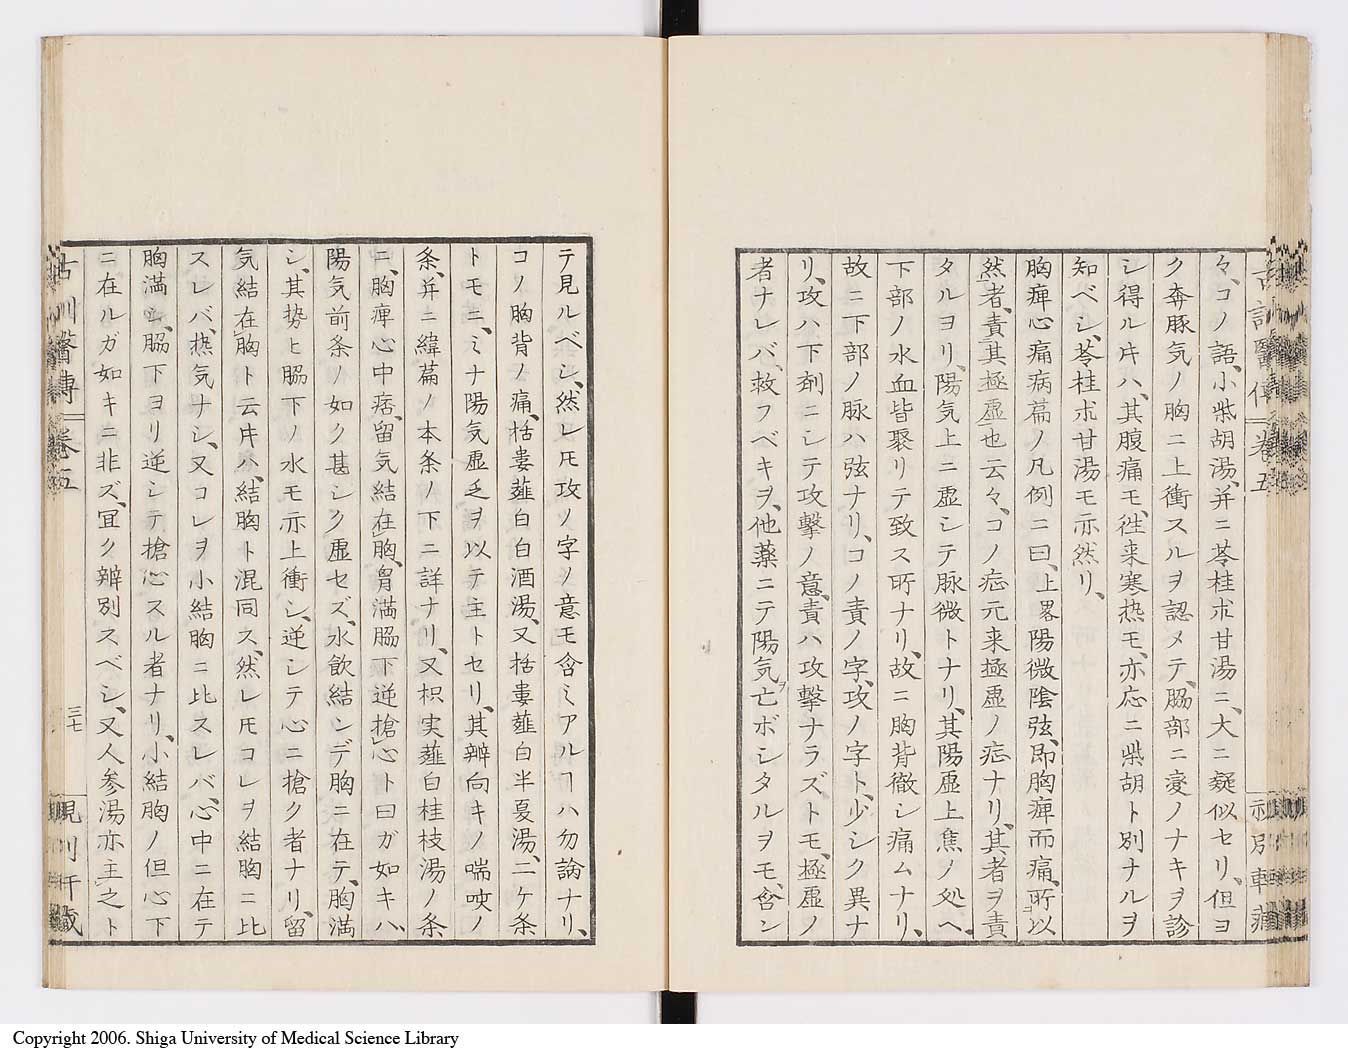 々、コノ語、小柴胡湯、并ニ苓桂朮甘湯ニ、大ニ疑似セリ、但ヨ
ク奔豚気ノ胸ニ上衝スルヲ認メテ、脇部ニ変ノナキヲ診
シ得ル片ハ、其腹痛モ、徃来寒热モ、亦応ニ柴胡ト別ナルヲ
知ベシ、苓桂朮甘湯モ亦然リ、
胸痺心痛病篇ノ凡例ニ曰、上畧陽微陰弦、即胸痺而痛、所以
然者、責其極虚也云々、コノ症元来極虚ノ症ナリ、其者ヲ責
タルヨリ、陽気上ニ虚シテ脉微トナリ、其陽虚上焦ノ処ヘ、
下部ノ水血皆聚リテ致ス所ナリ、故ニ胸背徹シ痛ムナリ、
故ニ下部ノ脉ハ弦ナリ、コノ責ノ字、攻ノ字ト、少シク異ナ
リ、攻ハ下剤ニシテ攻撃ノ意、責ハ攻撃ナラズトモ、極虚ノ
者ナレバ、救フベキヲ、他薬ニテ陽気ヲ亡ボシタルヲモ、含ン
テ見ルベシ、然レ𪜈攻ノ字ノ意モ含ミアルヿハ勿論ナリ、
コノ胸背ノ痛、栝蔞薤白白酒湯、又栝蔞薤白半夏湯、二ケ条
トモニ、ミナ陽気虚乏ヲ以テ主トセリ、其辨向キノ喘唊ノ
条、并ニ緯篇ノ本条ノ下ニ詳ナリ、又枳実薤白桂枝湯ノ条
ニ、胸痺心中痞、留気結在胸、胃満脇下逆搶心ト曰ガ如キハ、
陽気前条ノ如ク甚シク虚セズ、水飲結ンデ胸ニ在テ、胸満
シ、其势ヒ脇下ノ水モ亦上衝シ、逆シテ心ニ搶ク者ナリ、留
気結在胸ト云片ハ、結胸ト混同ス、然レ𪜈コレヲ結胸ニ比
スレバ、热気ナシ、又コレヲ小結胸ニ比スレバ、心中ニ在テ
胸満シ、脇下ヨリ逆シテ搶心スル者ナリ、小結胸ノ但心下
ニ在ルガ如キニ非ズ、冝ク辨別スベシ、又人参湯亦主之ト
古訓醫傳 巻五
三七